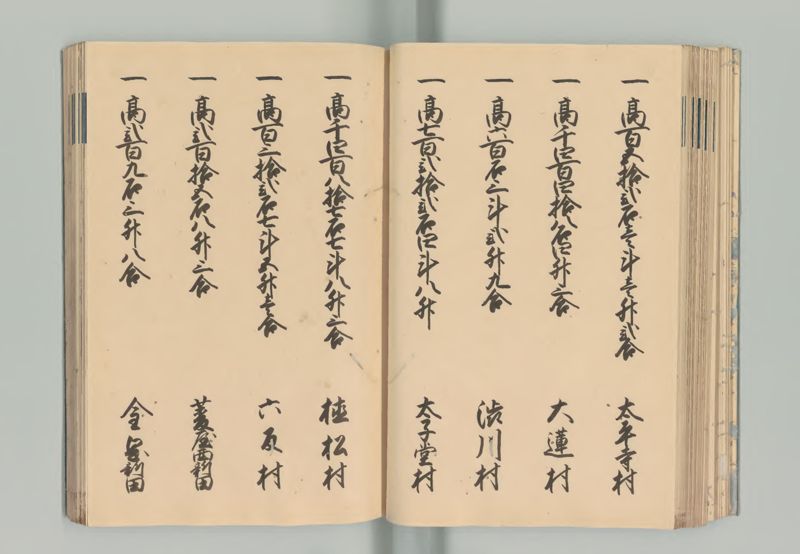 一 髙百五拾弐石壱斗壱升弐合 太平寺村
一 髙千四百四拾八石四升三合 大蓮村
一 髙六百石三斗弐升九合 渋川村
一 髙七百弐拾弐石四斗八升 太子堂村
一 髙千四百八拾七石七斗八升三合 植松村
一 髙百三拾弐石七斗五升壱合 六反村
一 髙弐百拾五石八升三合 菱屋西新田
一 髙弐百九石三升八合 金岡新田